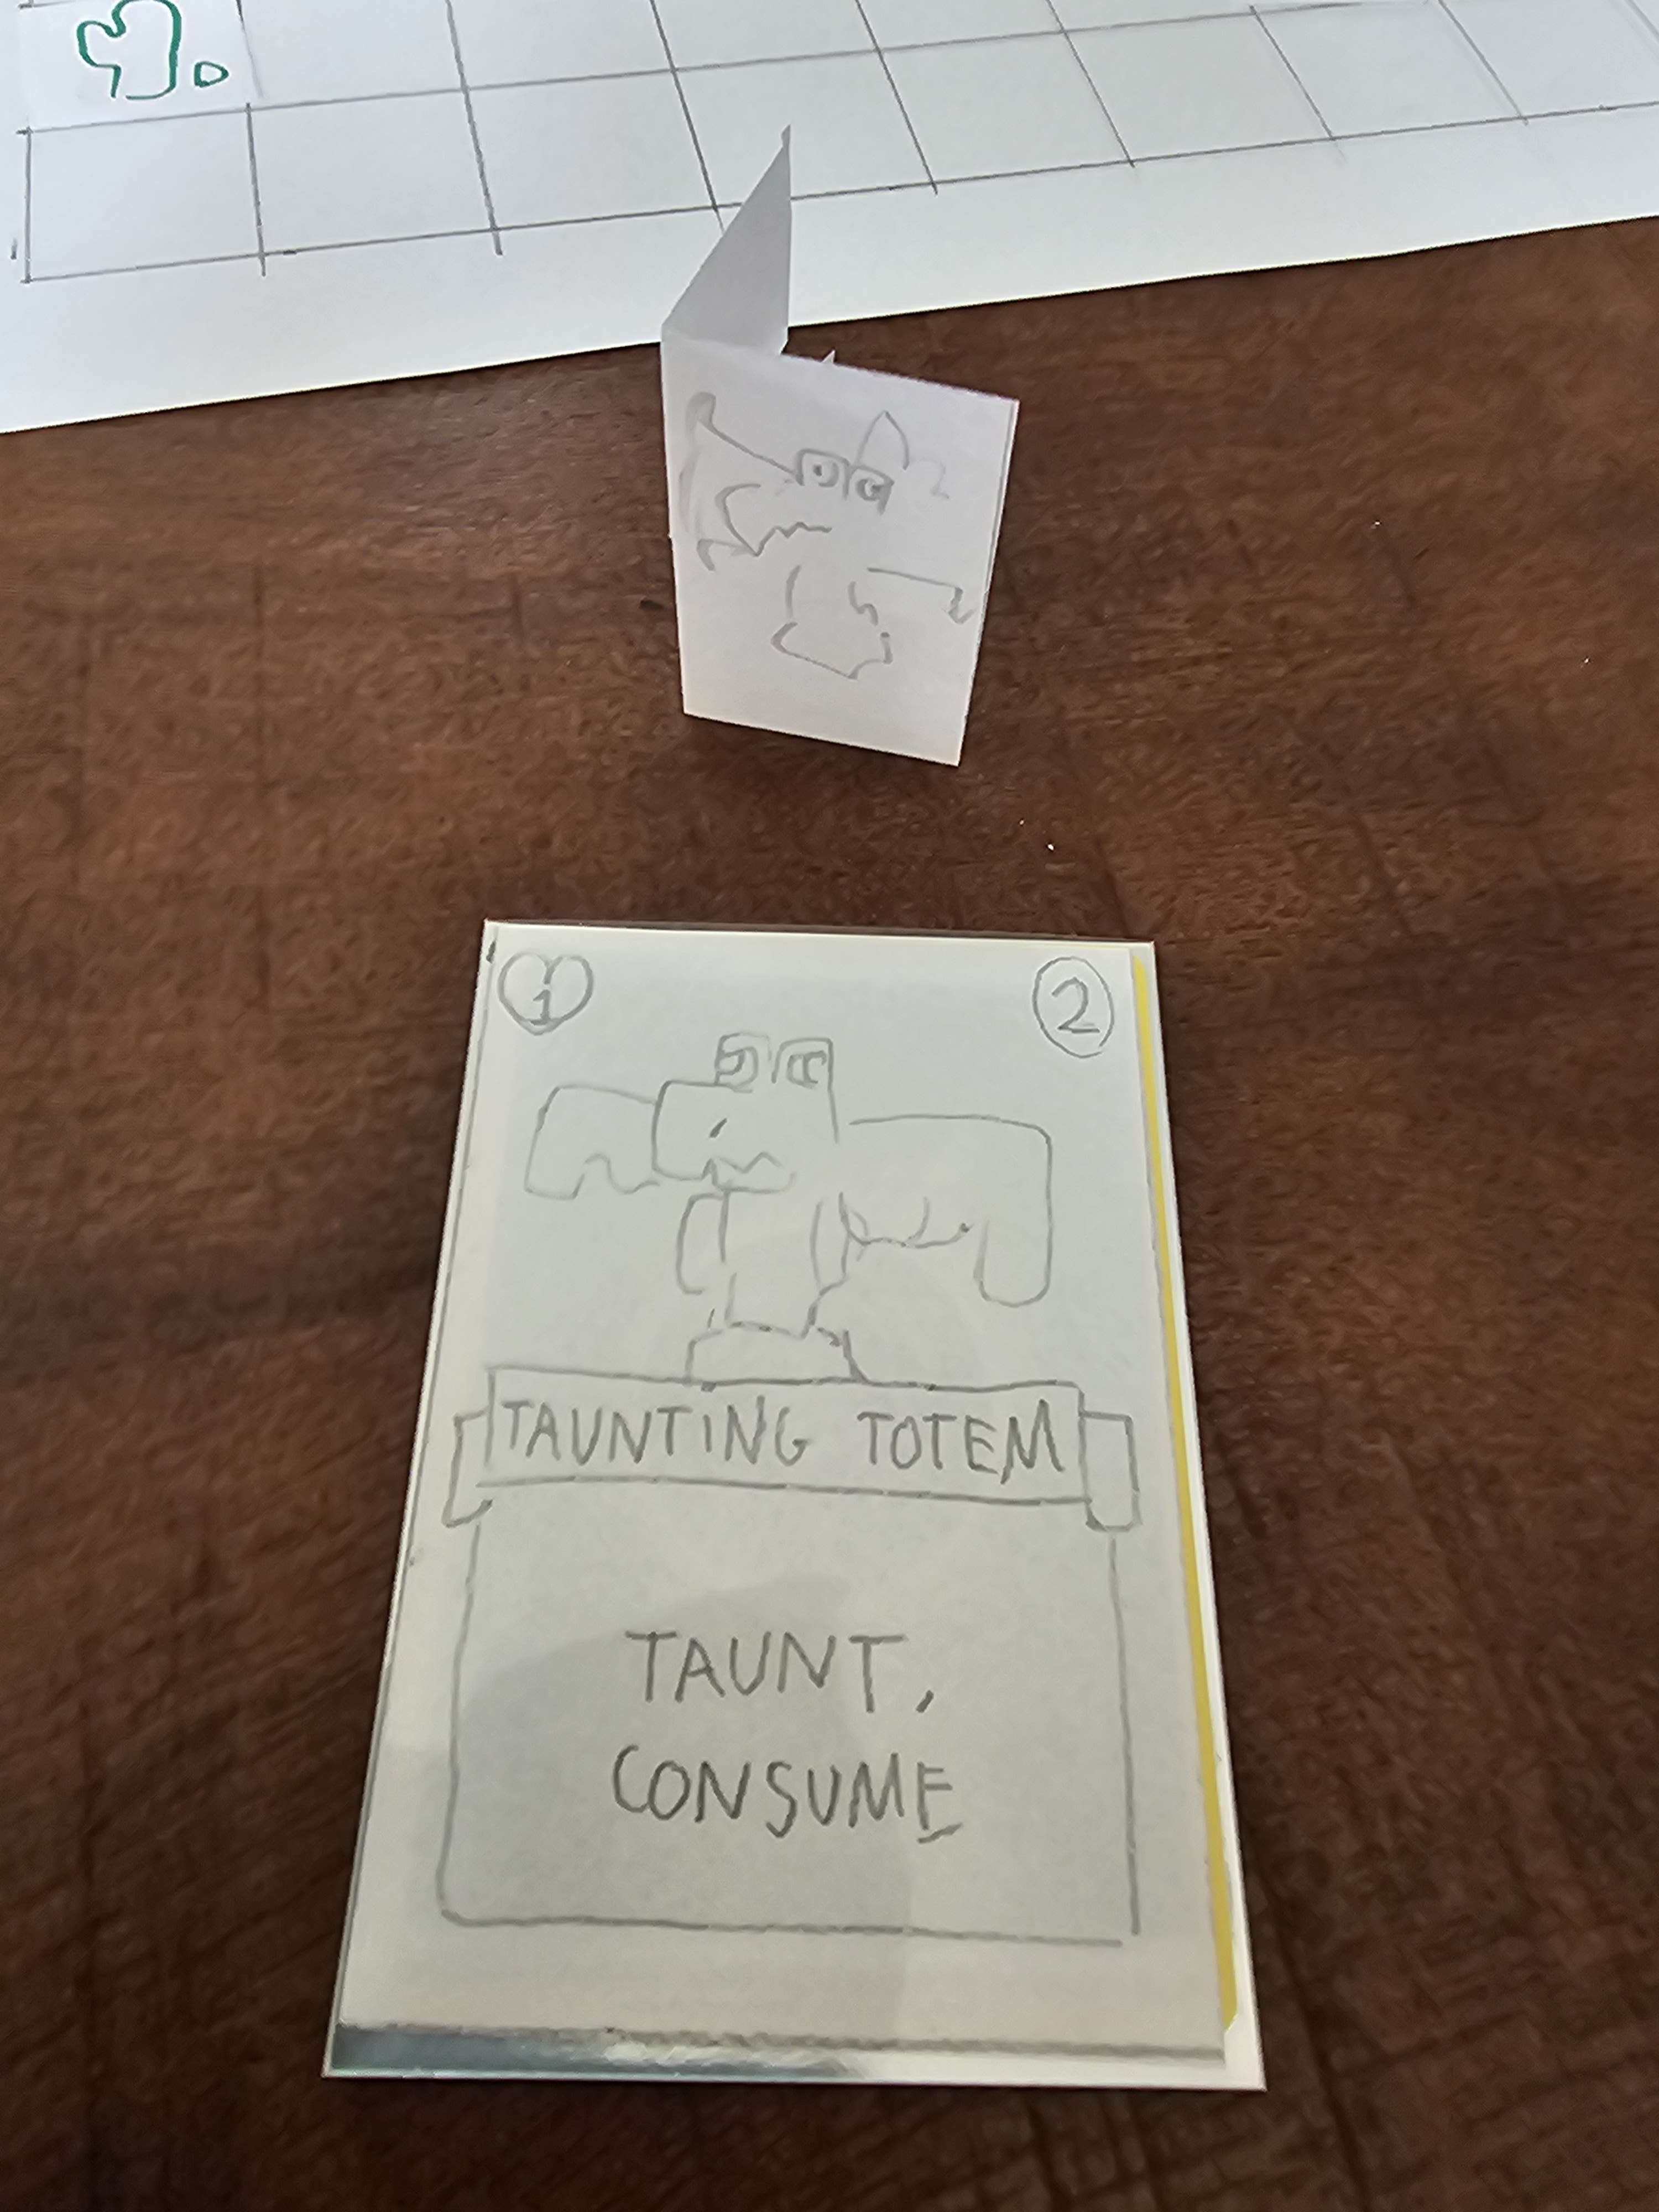 1
2
TAUNTING TOTEM
TAUNT,
CONSUME